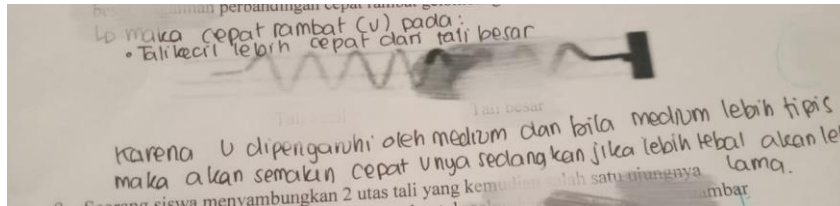 perbandingan cepat rambat
↳ maka cepat rambat (v) pada :
• Tali kecil lebih cepat dari tali besar
Tali kecil
Tali besar
Karena v dipengaruhi oleh medium dan bila medium lebih tipis
maka akan semakin cepat v nya sedangkan jika lebih tebal akan le
lama.
siswa menyambungkan 2 utas tali yang kemudian salah satu ujungnya
ambar